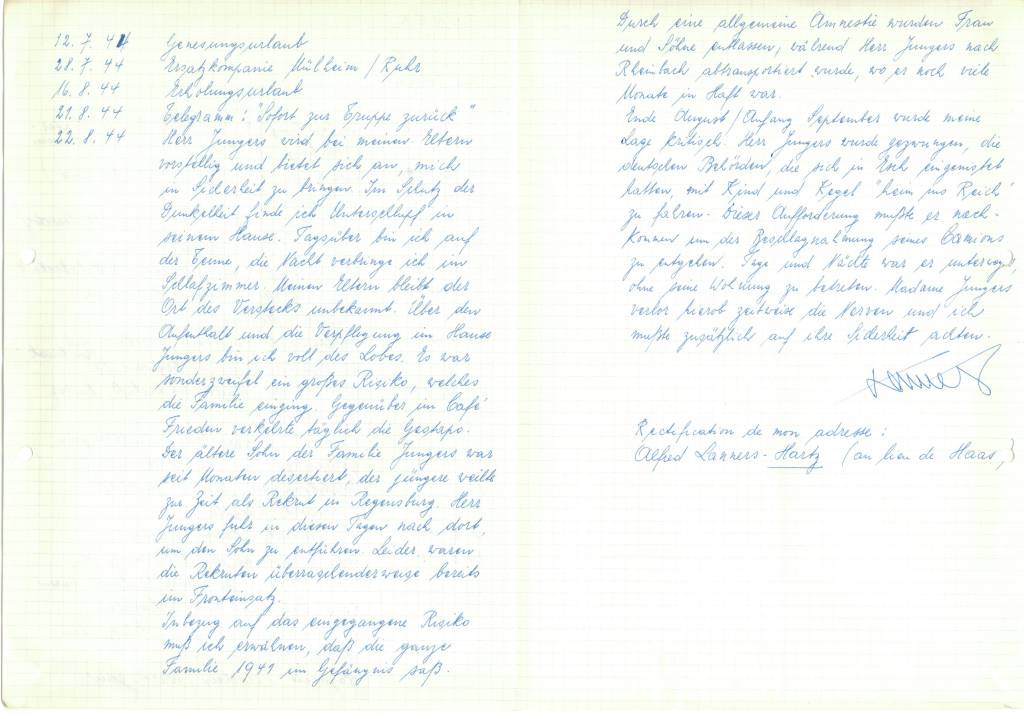 12. 7. 44 Genesungsurlaub
28. 7. 44 Ersatzkompanie Mülheim / Ruhr
16. 8. 44 Erholungsurlaub
21. 8. 44 Telegramm: "Sofort zur Truppe zurück"
22. 8. 44 Herr Jungers wird bei meinen Eltern
vorstellig und bietet sich an, mich
in Sicherheit zu bringen. Im Schutz der
Dunkelheit finde ich Unterschlupf in
seinem Hause. Tagsüber bin ich auf
der Tenne, die Nacht verbringe ich im
Schlafzimmer. Meinen Eltern bleibt der
Ort des Verstecks unbekannt. Über den
Aufenthalt und die Verpflegung im Hause
Jungers bin ich voll des Lobes. Es war
sonderzweifel ein großes Risiko, welches
die Familie einging. Gegenüber im Café
Frieden verkehrte täglich die Gestapo.
Der ältere Sohn der Familie Jungers war
seit Monaten desertiert, der jüngere weilte
zur Zeit als Rekrut in Regensburg. Herr
Jungers fuhr in diesen Tagen nach dort,
um den Sohn zu entführen. Leider waren
die Rekruten überraschenderweise bereits
im Fronteinsatz.
Inbezug auf das eingegangene Risiko
muß ich erwähnen, daß die ganze
Familie 1941 im Gefängnis saß.
Durch eine allgemeine Amnestie wurden Frau
und Söhne entlassen, während Herr Jungers nach
Rheinbach abtransportiert wurde, wo er noch viele
Monate in Haft war.
Ende August / Anfang September wurde meine
Lage kritisch. Herr Jungers wurde gezwungen, die
deutschen Behörden, die sich in Esch eingenistet
hatten, mit Kind und Kegel "heim ins Reich"
zu fahren. Dieser Aufforderung mußte er nach-
kommen um der Beschlagnahmung seines Camions
zu entgehen. Tage und Nächte war er unterwegs,
ohne seine Wohnung zu betreten. Madame Jungers
verlor hierob zeitweise die Nerven und ich
mußte zusätzlich auf ihre Sicherheit achten.
Rectification de mon adresse:
Alfred Lanners-Hartz (au lieu de Haas,)